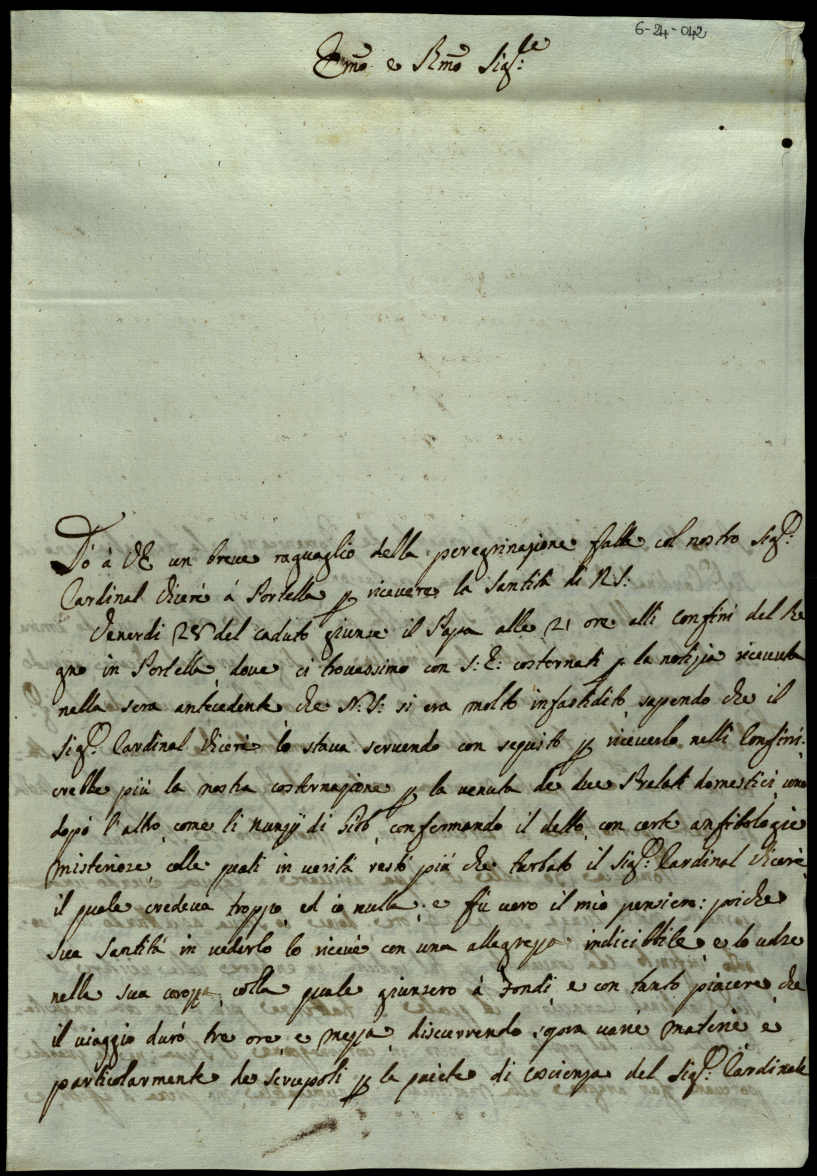 6-24-042
Emo e Rmo Sig.re
Dò à VE un breve raguaglio della peregrinazione fatta col nostro Sig.r
Cardinal Vicerè à Portella p ricevere la Santità di N.S:
Venerdi 28 del caduto giunse il Papa alle 21 ore alli Confini del Re
gno in Portella, dove ci trovassimo con S: E: costernati p la notizia ricevuta
nella sera antecedente che N:S: si era molto infastidito sapendo che il
Sig.r Cardinal Vicerè lo stava servendo con seguito p riceverlo nelli Confini:
crebbe più la nostra costernazione p la venuta de due Prelati domestici, uno
dopò l'altro, come li nunzij di Giob, confermando il detto, con certe anfibologie
misteriose, colle quali in verità restò più che turbato il Sig.r Cardinal Vicerè,
il quale credeva troppo, ed io nulla; e fù vero il mio pensiero: poiche
sua Santità in vederlo lo ricevè con una allegrezza indicibbile, e lo volse
nella sua carozza, colla quale giunsero à Fondi, e con tanto piacere che
il viaggio durò tre ore e mezza, discurrendo sopra varie materie e
particolarmente de scrupoli p la quiete di coscienza del Sig.r Cardinale